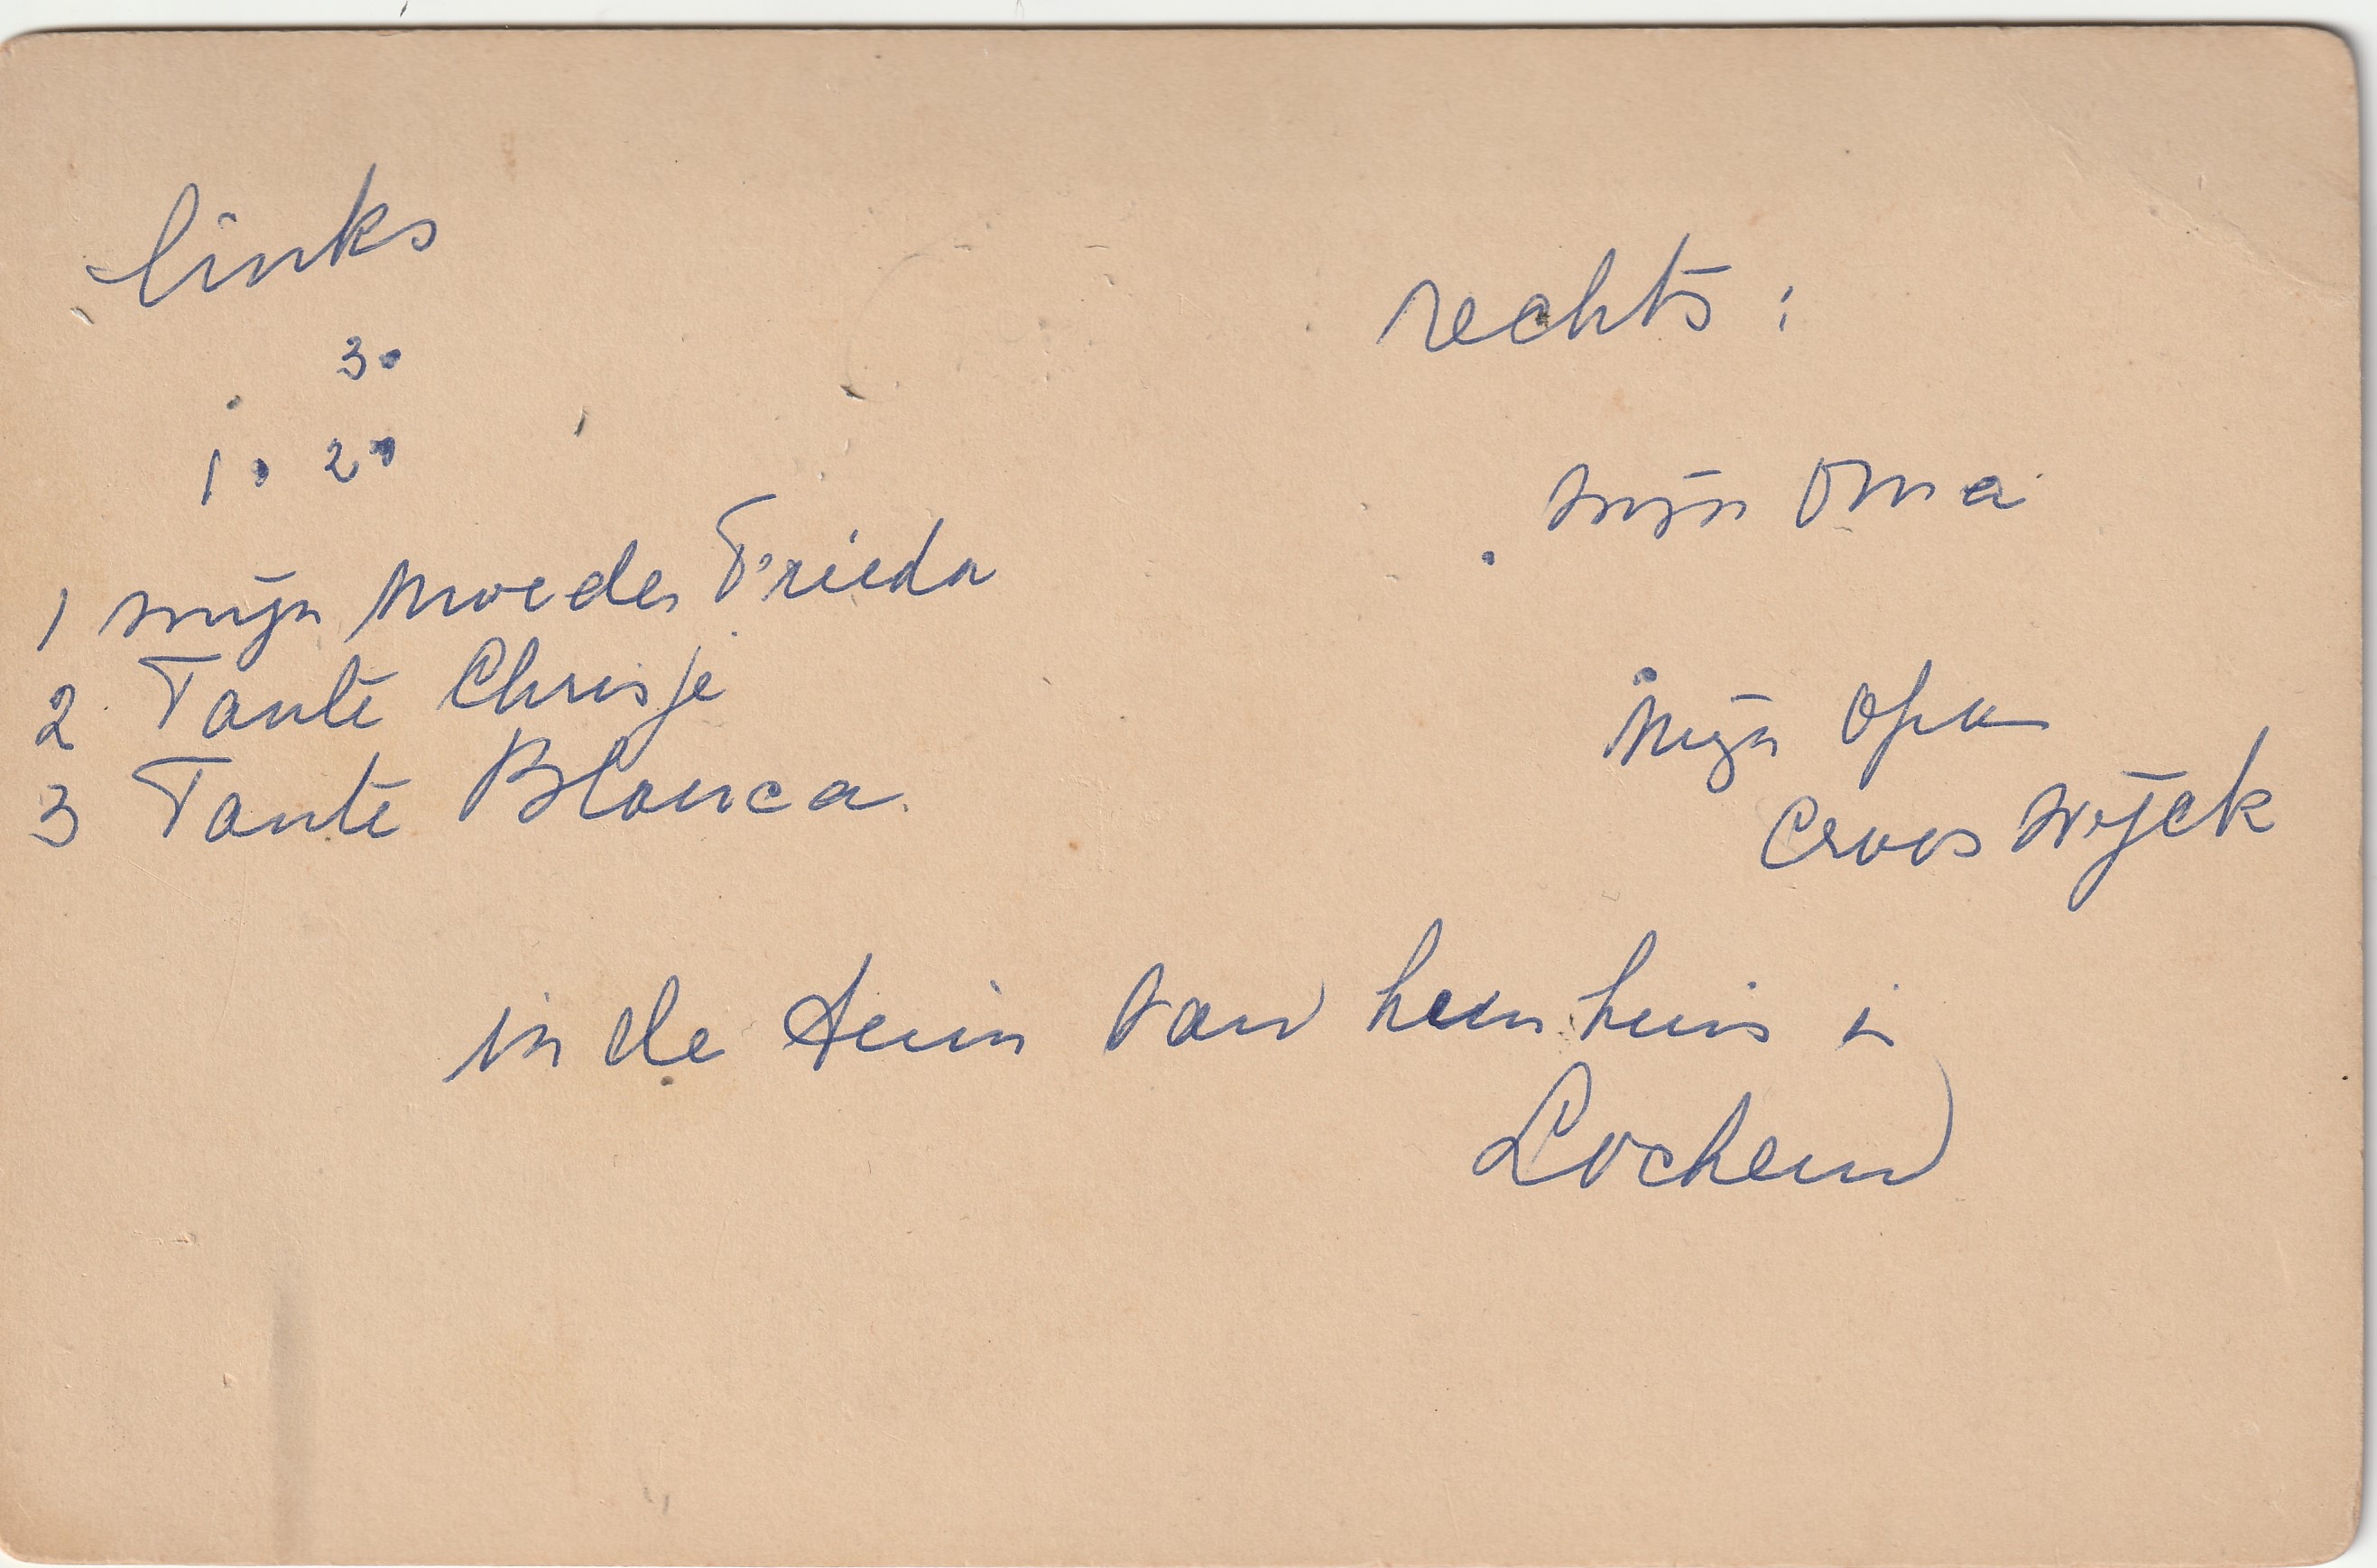 links
3.
1. 2.
1 mijn moeder Frieda
2 Tante Chrisje
3 Tante Blanca
rechts:
mijn Oma
mijn Opa
Crooswijck
in de tuin van hun huis in
Lochem